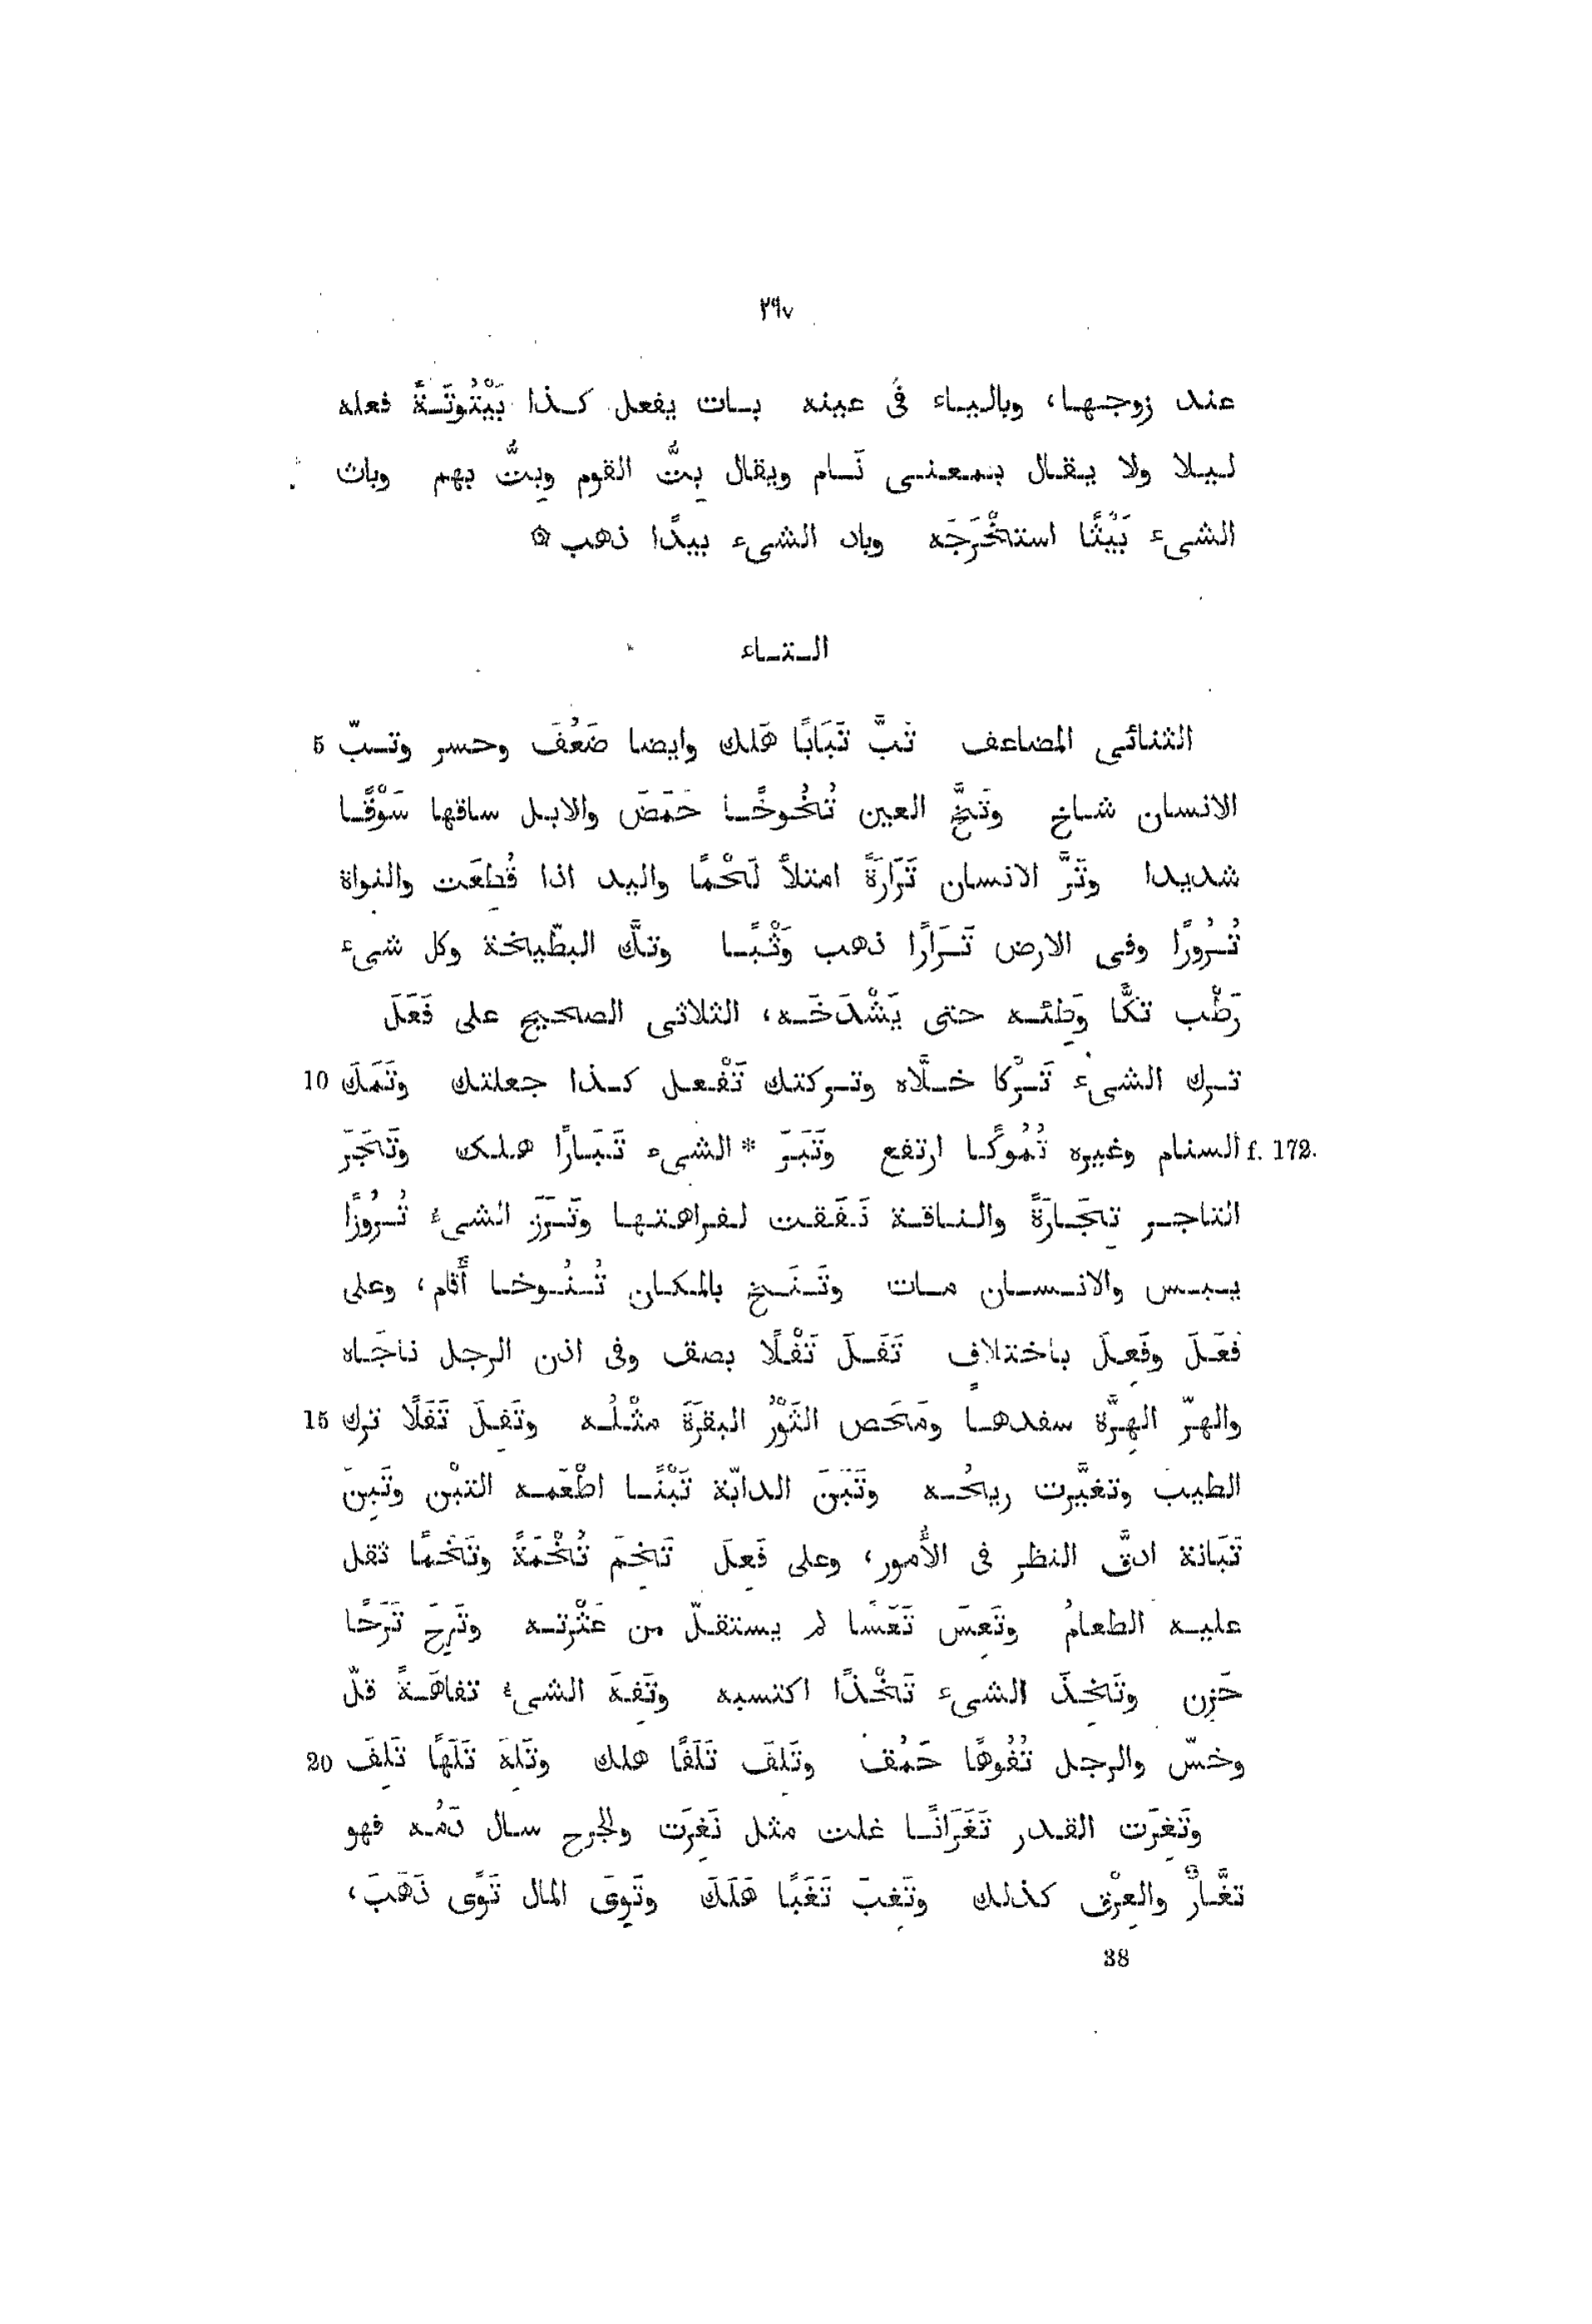 ٢٩٧
عند زوجها، وبالياء فى عينه بات يفعل كذا بَيْتُوتَةً فعله
ليلا ولا يقال بمعنى نَام ويقال بِتُّ القوم وبِتُّ بهم وباث
الشىء بَيْثًا استخْرَجَه وباد الشىء بيدًا ذهب ۞
التاء
الثنائى المضاعف تَبَّ تَبَابًا هَلك وايضا ضَعُفَ وخسر وتبّ 5
الانسان شاخ وتَخَّ العجين تُخُوخًا حَمَضَ والابل ساقها سَوْقًا
شديدا وتَرَّ الانسان تَرَارَةً امتلأ لَحْمًا واليد اذا قُطِعَت والنواة
تُرُورًا وفى الارض تَرَارًا ذهب وَثْبًا وتكَّ البطّيخة وكل شىء
رَطْب تكًّا وَطِئه حتى يَشْدَخَه، الثلاثى الصحيح على فَعَلَ
ترك الشىء تَرْكا خلَّاه وتركتك تَفْعل كذا جعلتك وتَمَكَ 10
السنام وغيره تُمُوكًا ارتفع وتَبَرَ * الشىء تَبَارًا هلك وتَجَرَ f. 172.
التاجر تِجَارَةً والناقة نَفَقت لفراهتها وتَرَزَ الشىءُ تُرُوزًا
يبس والانسان مات وتَنَخ بالمكان تُنُوخا أَقام، وعلى
فَعَلَ وفَعِلَ باختلافٍ تَفَلَ تَفْلًا بصق وفى اذن الرجل ناجَاه
والهرّ الهِرَّة سفدها ومَحَص الثَوْرُ البقرَةَ مثْلُه وتَفِلَ تَفَلًا ترك 15
الطيبَ وتغيَّرت ريحُه وتَبَنَ الدابّة تَبْنًا اطْعَمه التبْن وتَبِنَ
تَبَانة ادقَّ النظر فى الأُمور، وعلى فَعِلَ تَخِمَ تُخْمَةً وتَخَمًا ثقل
عليه الطعامُ وتَعِسَ تَعَسًا لم يستقلّ من عَثْرته وتَرِحَ تَرَحًا
حَزِن وتَخِذَ الشىء تَخْذًا اكتسبه وتَفِهَ الشىءُ تفاهَةً قلّ
وخسّ والرجل تُفُوهًا حَمُق وتَلِفَ تَلَفًا هلك وتَلِهَ تَلَهًا تَلِفَ 20
وتَغِرَت القدر تَغَرَانًا غلت مثل نَغِرَت والجرح سال دَمُه فهو
تغَّارٌ والعِرْق كذلك وتَغِبَ تَغَبًا هَلَكَ وتَوِىَ المال تَوًى ذَهَبَ،
38